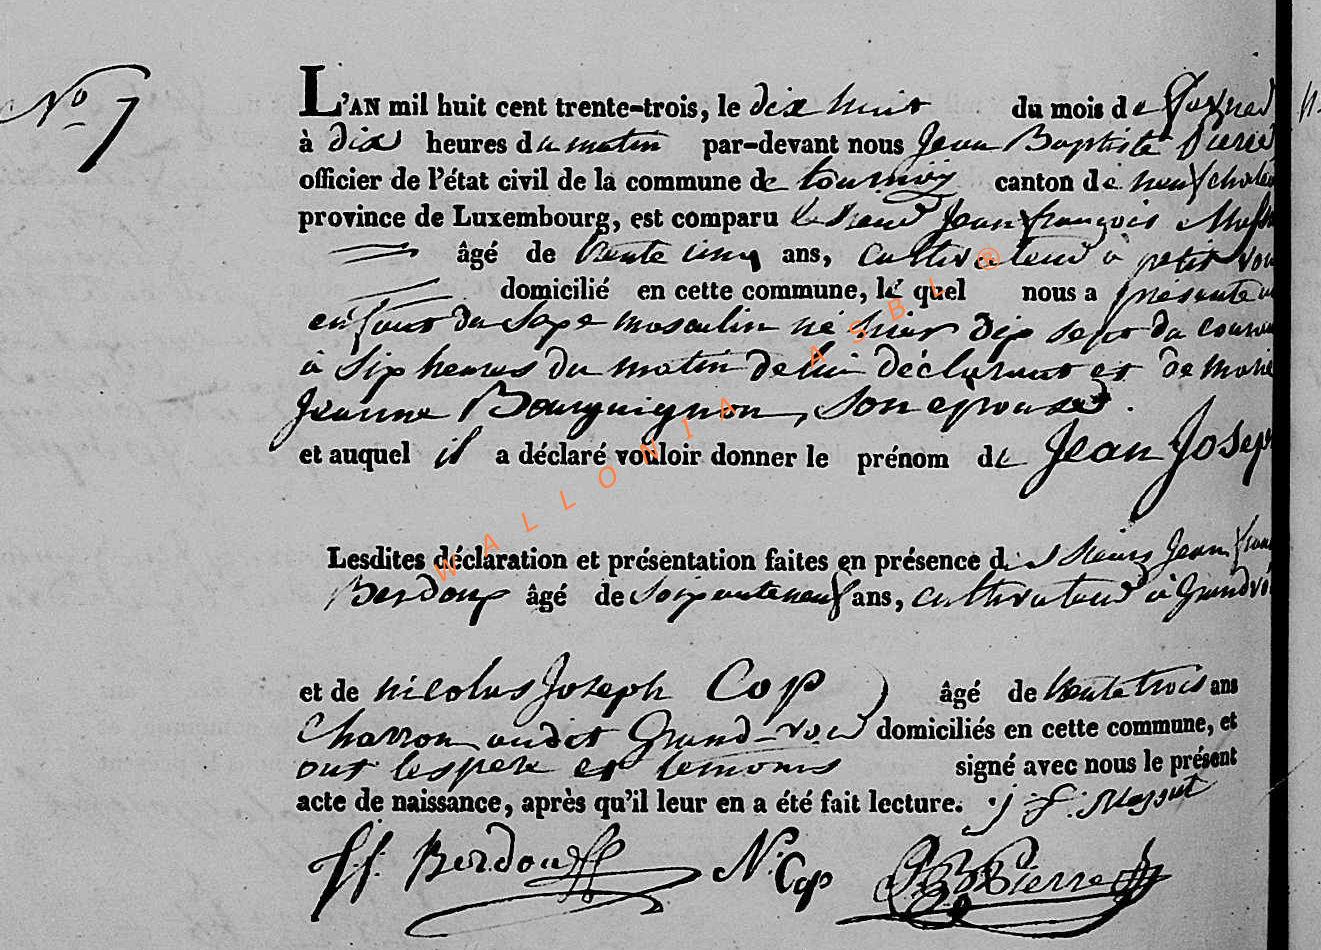 N° 7
L'AN mil huit cent trente-trois, le dix huit du mois de Janvier
à dix heures du matin par-devant nous Jean Baptiste Pierre
officier de l'état civil de la commune de tournay canton de neufchateau
province de Luxembourg, est comparu le sieur Jean françois
âgé de trente cinq ans, cultivateur à petit voir
domicilié en cette commune, le quel nous a présenté un
enfant du Sexe masculin né hier dix sept du courant
à Six heures du matin de lui déclarant et de marie
Jeanne Bourguignon, son epouse.
et auquel il a déclaré vouloir donner le prénom de Jean Joseph
Lesdites déclaration et présentation faites en présence des Sieurs Jean
Berdoux âgé de Soixante neuf ans, cultivateur à Grandvoir
et de nicolas Joseph Cop âgé de trente trois ans
Charron audit Grand-voir domiciliés en cette commune, et
ont les pere et temoins signé avec nous le présent
acte de naissance, après qu'il leur en a été fait lecture. j. f. Massut
j. f. Berdoux N. Cop JB Pierre
WALLONIA ASBL ®